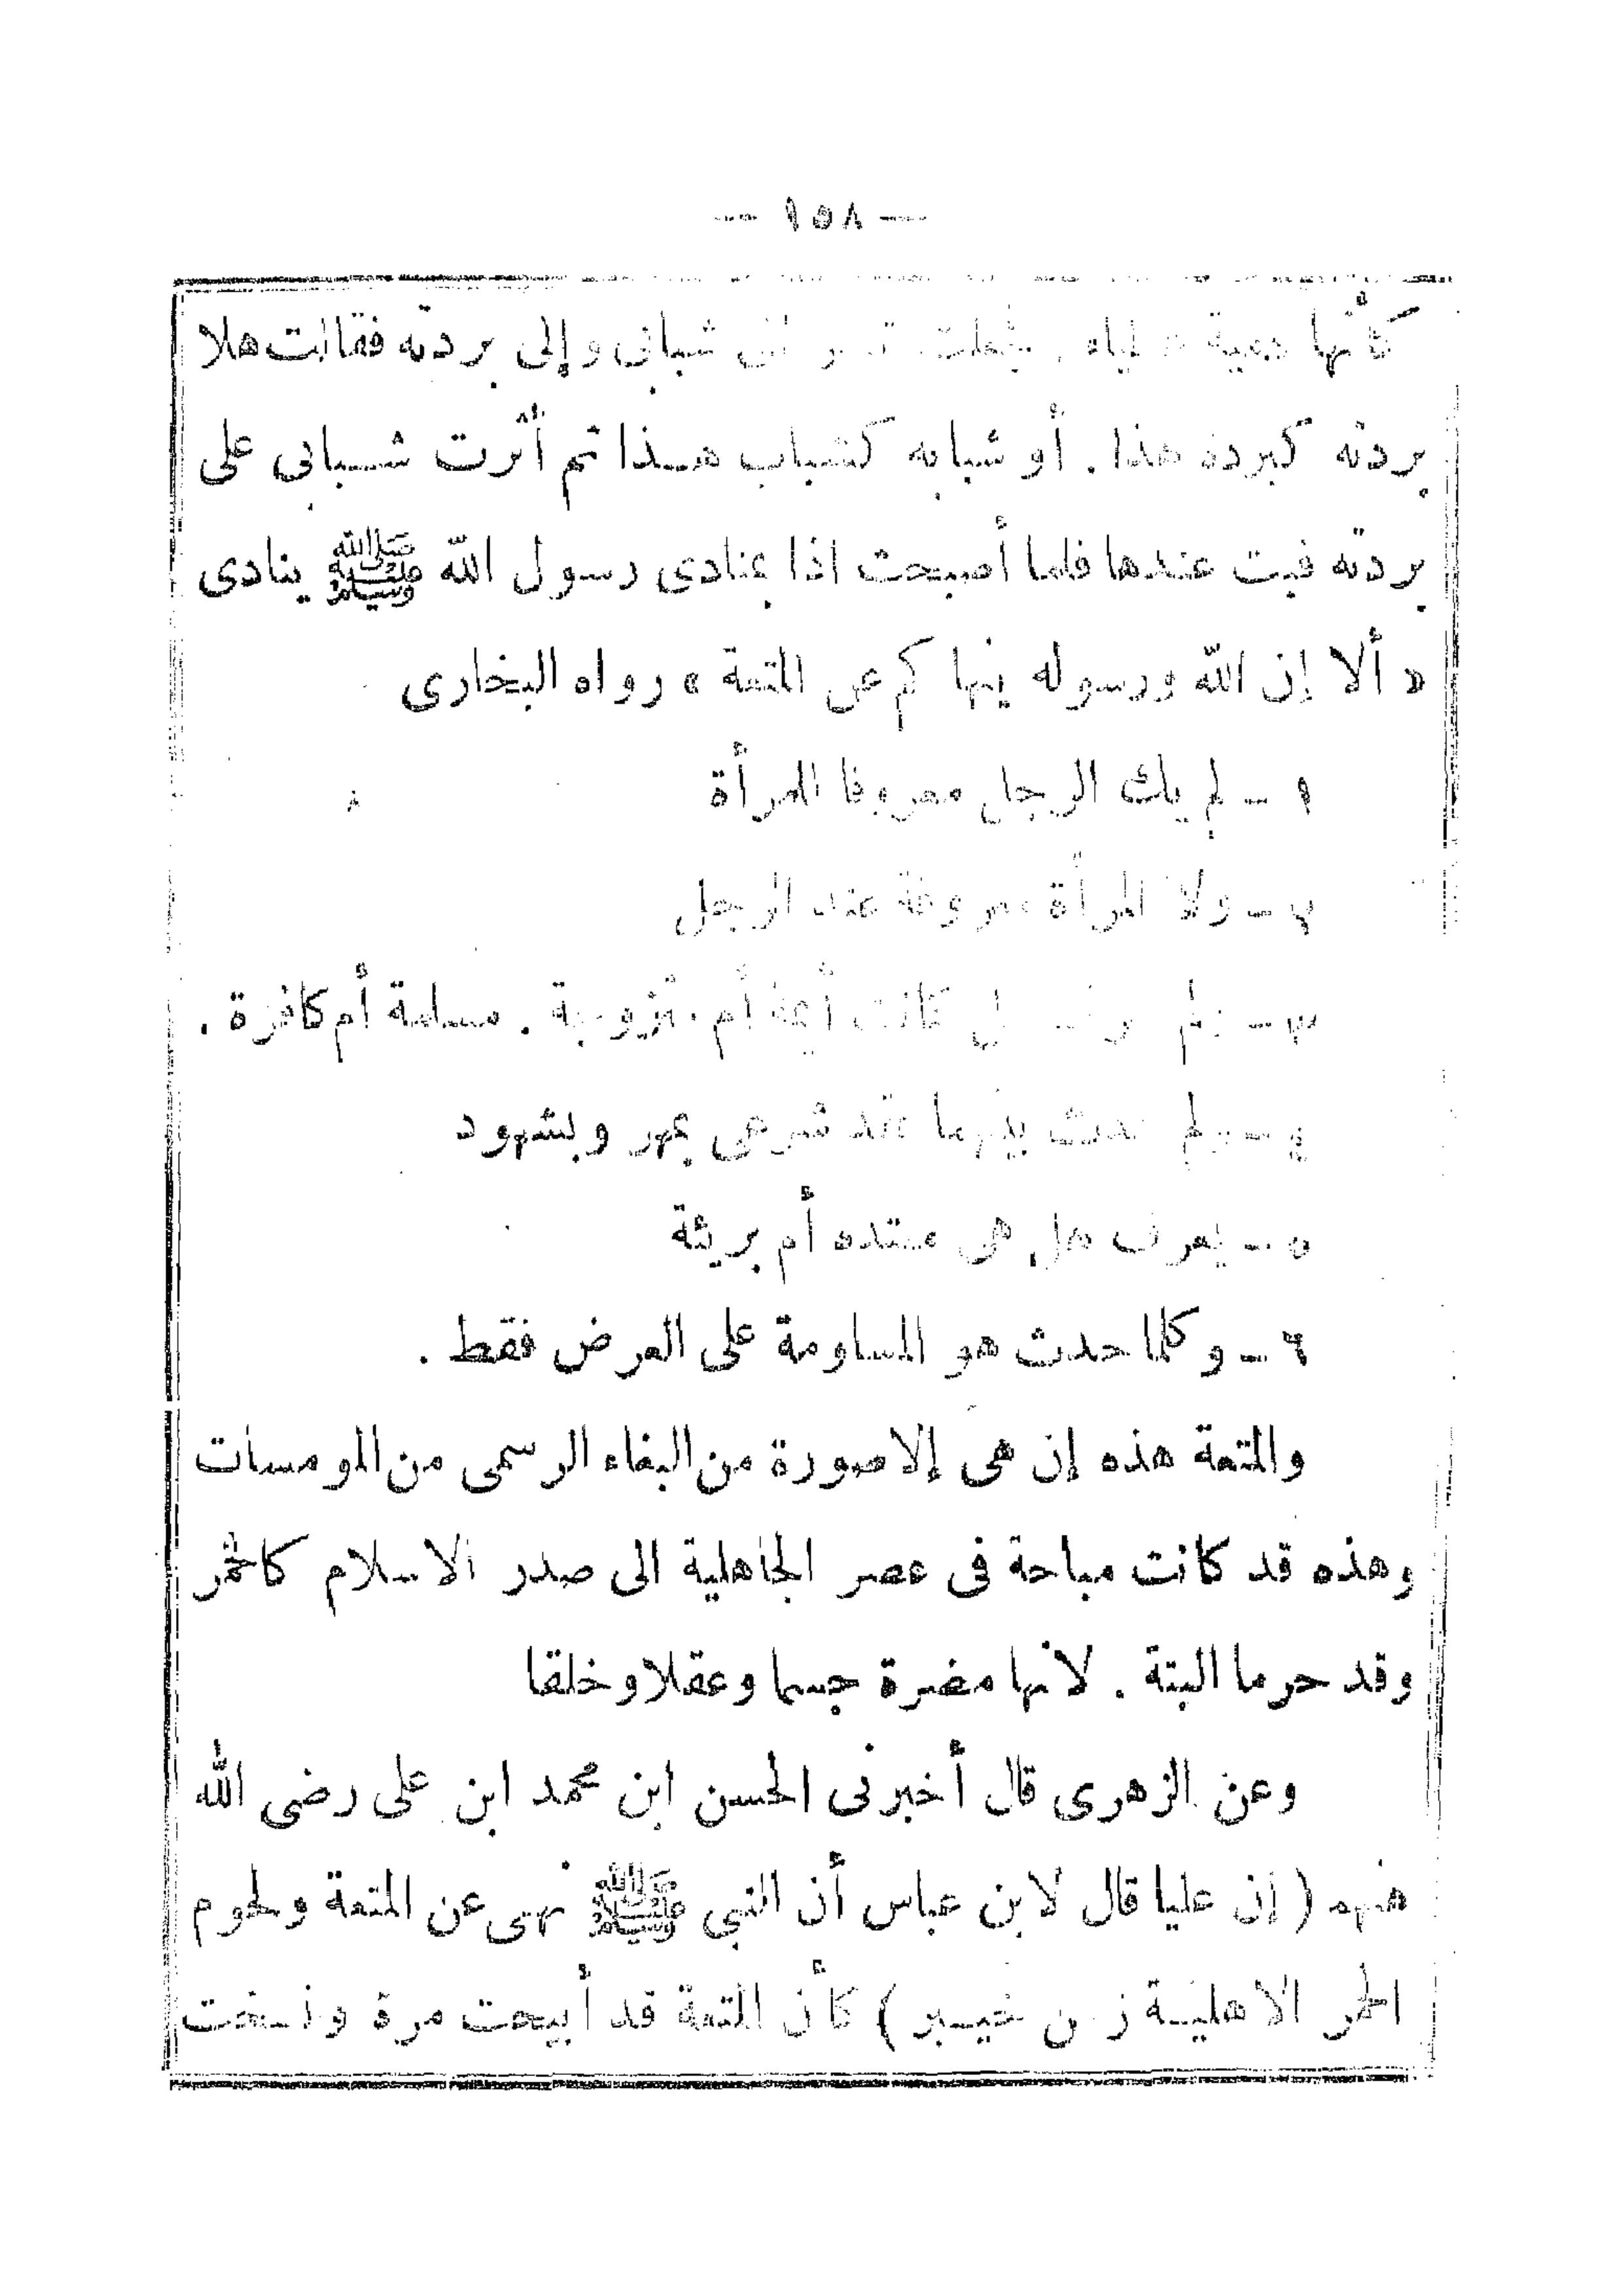 — ١٥٨ —
كأنها دمية شبابى وإلى بردته فقالت هلا
بردته كبردة هذا . أو شبابه كشباب هذا ثم أثرت شبابى على
بردته فبت عندها فلما أصبحت اذا بمنادى رسول الله ﷺ ينادى
« ألا إن الله ورسوله ينهاكم عن المتعة » رواه البخارى
١ – لم يك الرجل معروفا للمرأة
٢ – ولا المرأة معروفة عند الرجل
٣ – ولم كانت أم متزوجة . مسلمة أم كافرة .
٤ – ولم يحدث بينهما عقد شرعى بمهر وبشهود
٥ – يعرف هل هى معتده أم بريئة
٦ – وكلما حدث هو المساومة على العرض فقط .
والمتعة هذه إن هى إلا صورة من البغاء الرسمى من المومسات
وهذه قد كانت مباحة فى عصر الجاهلية الى صدر الاسلام كالخمر
وقد حرما البتة . لانها مضرة جسما وعقلا وخلقا
وعن الزهرى قال أخبرنى الحسن ابن محمد ابن على رضى الله
عنهم ( إن عليا قال لابن عباس أن النبي ﷺ نهى عن المتعة ولحوم
الحمر الاهلية زمن خيبر ) كأن المتعة قد أبيحت مرة ونسخت